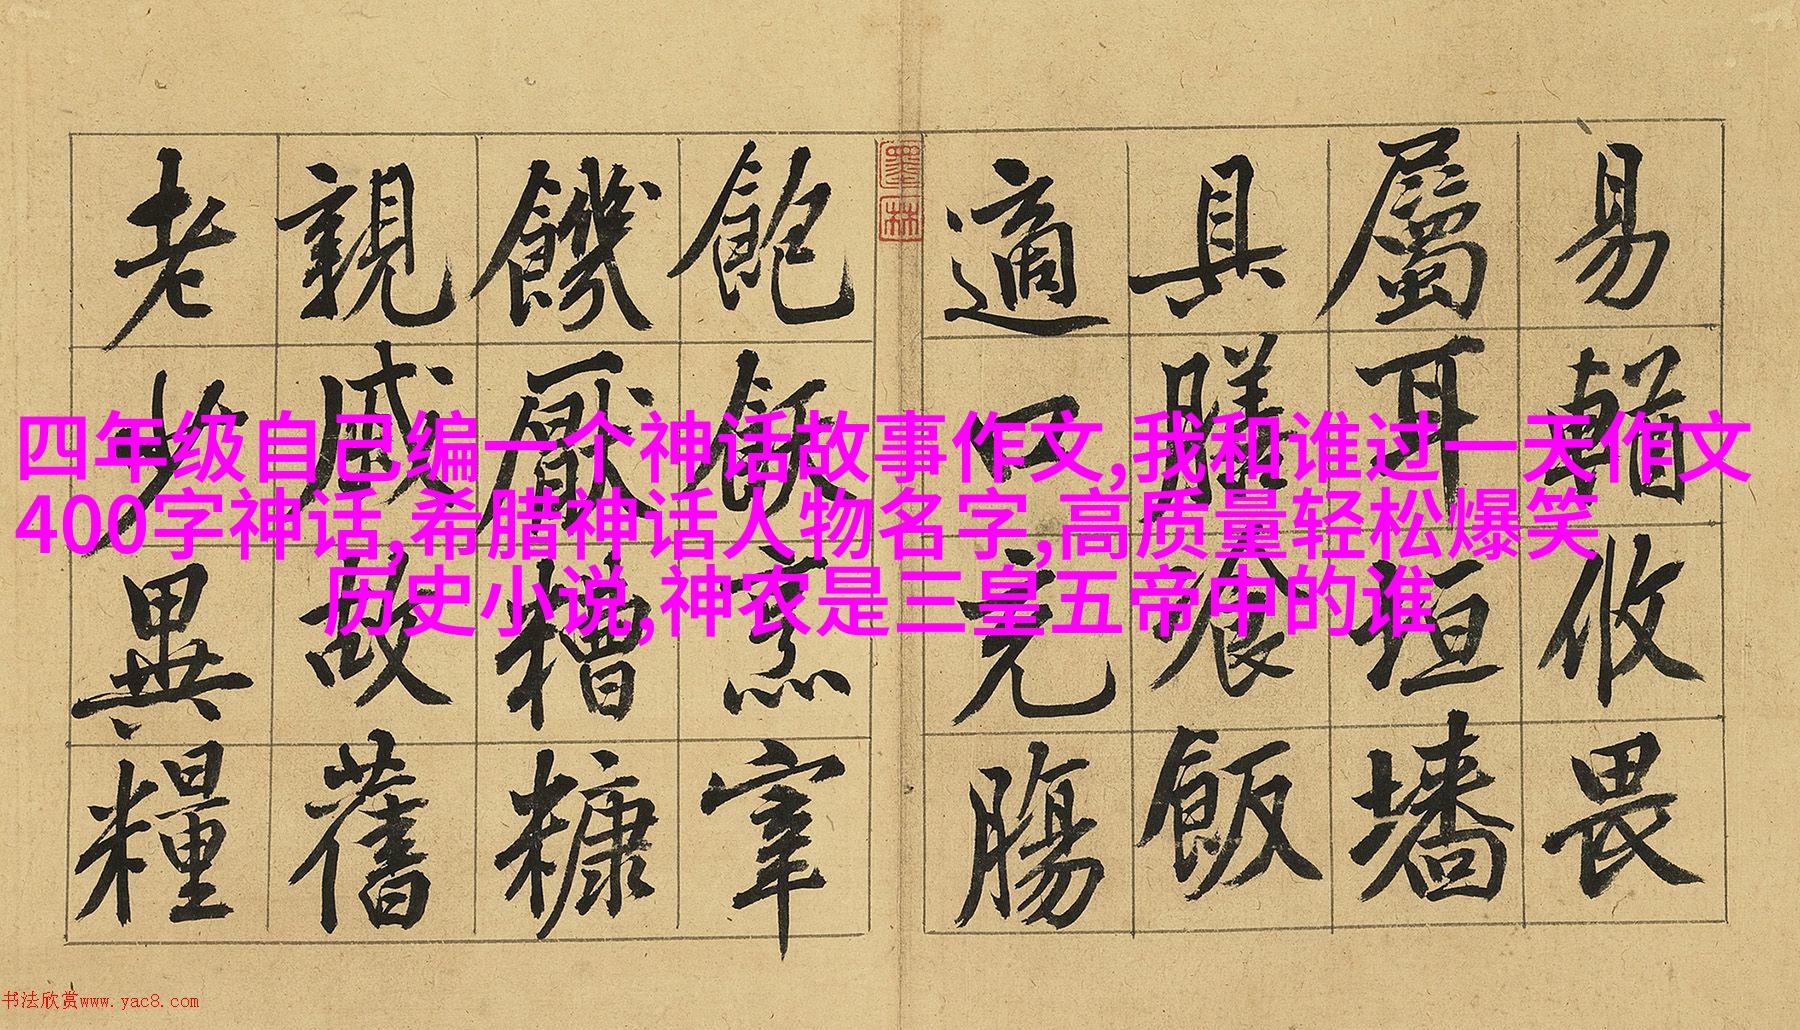 易輶攸畏
屬耳垣墻
具膳飡飯
適口充腸
墨林
飽飫烹宰
饑厭糟糠
親戚故舊
老少異糧
四年级自己编一个神话故事作文,我和谁过一天作文
400字神话,希腊神话人物名字,高质量轻松爆笑
历史小说,神农是三皇五帝中的谁
书法欣赏www.yac8.com